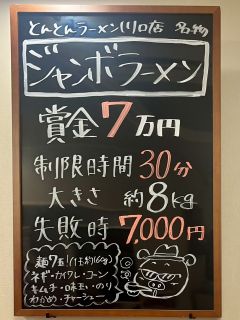 とんとんラーメン川口店 名物
ジャンボラーメン
賞金7万円
制限時間 30分
大きさ 約8kg
失敗時 7,000円
麺7玉!
ネギ・カイワレ・コーン
キムチ・味玉・のり
わかめ・チャーシュー